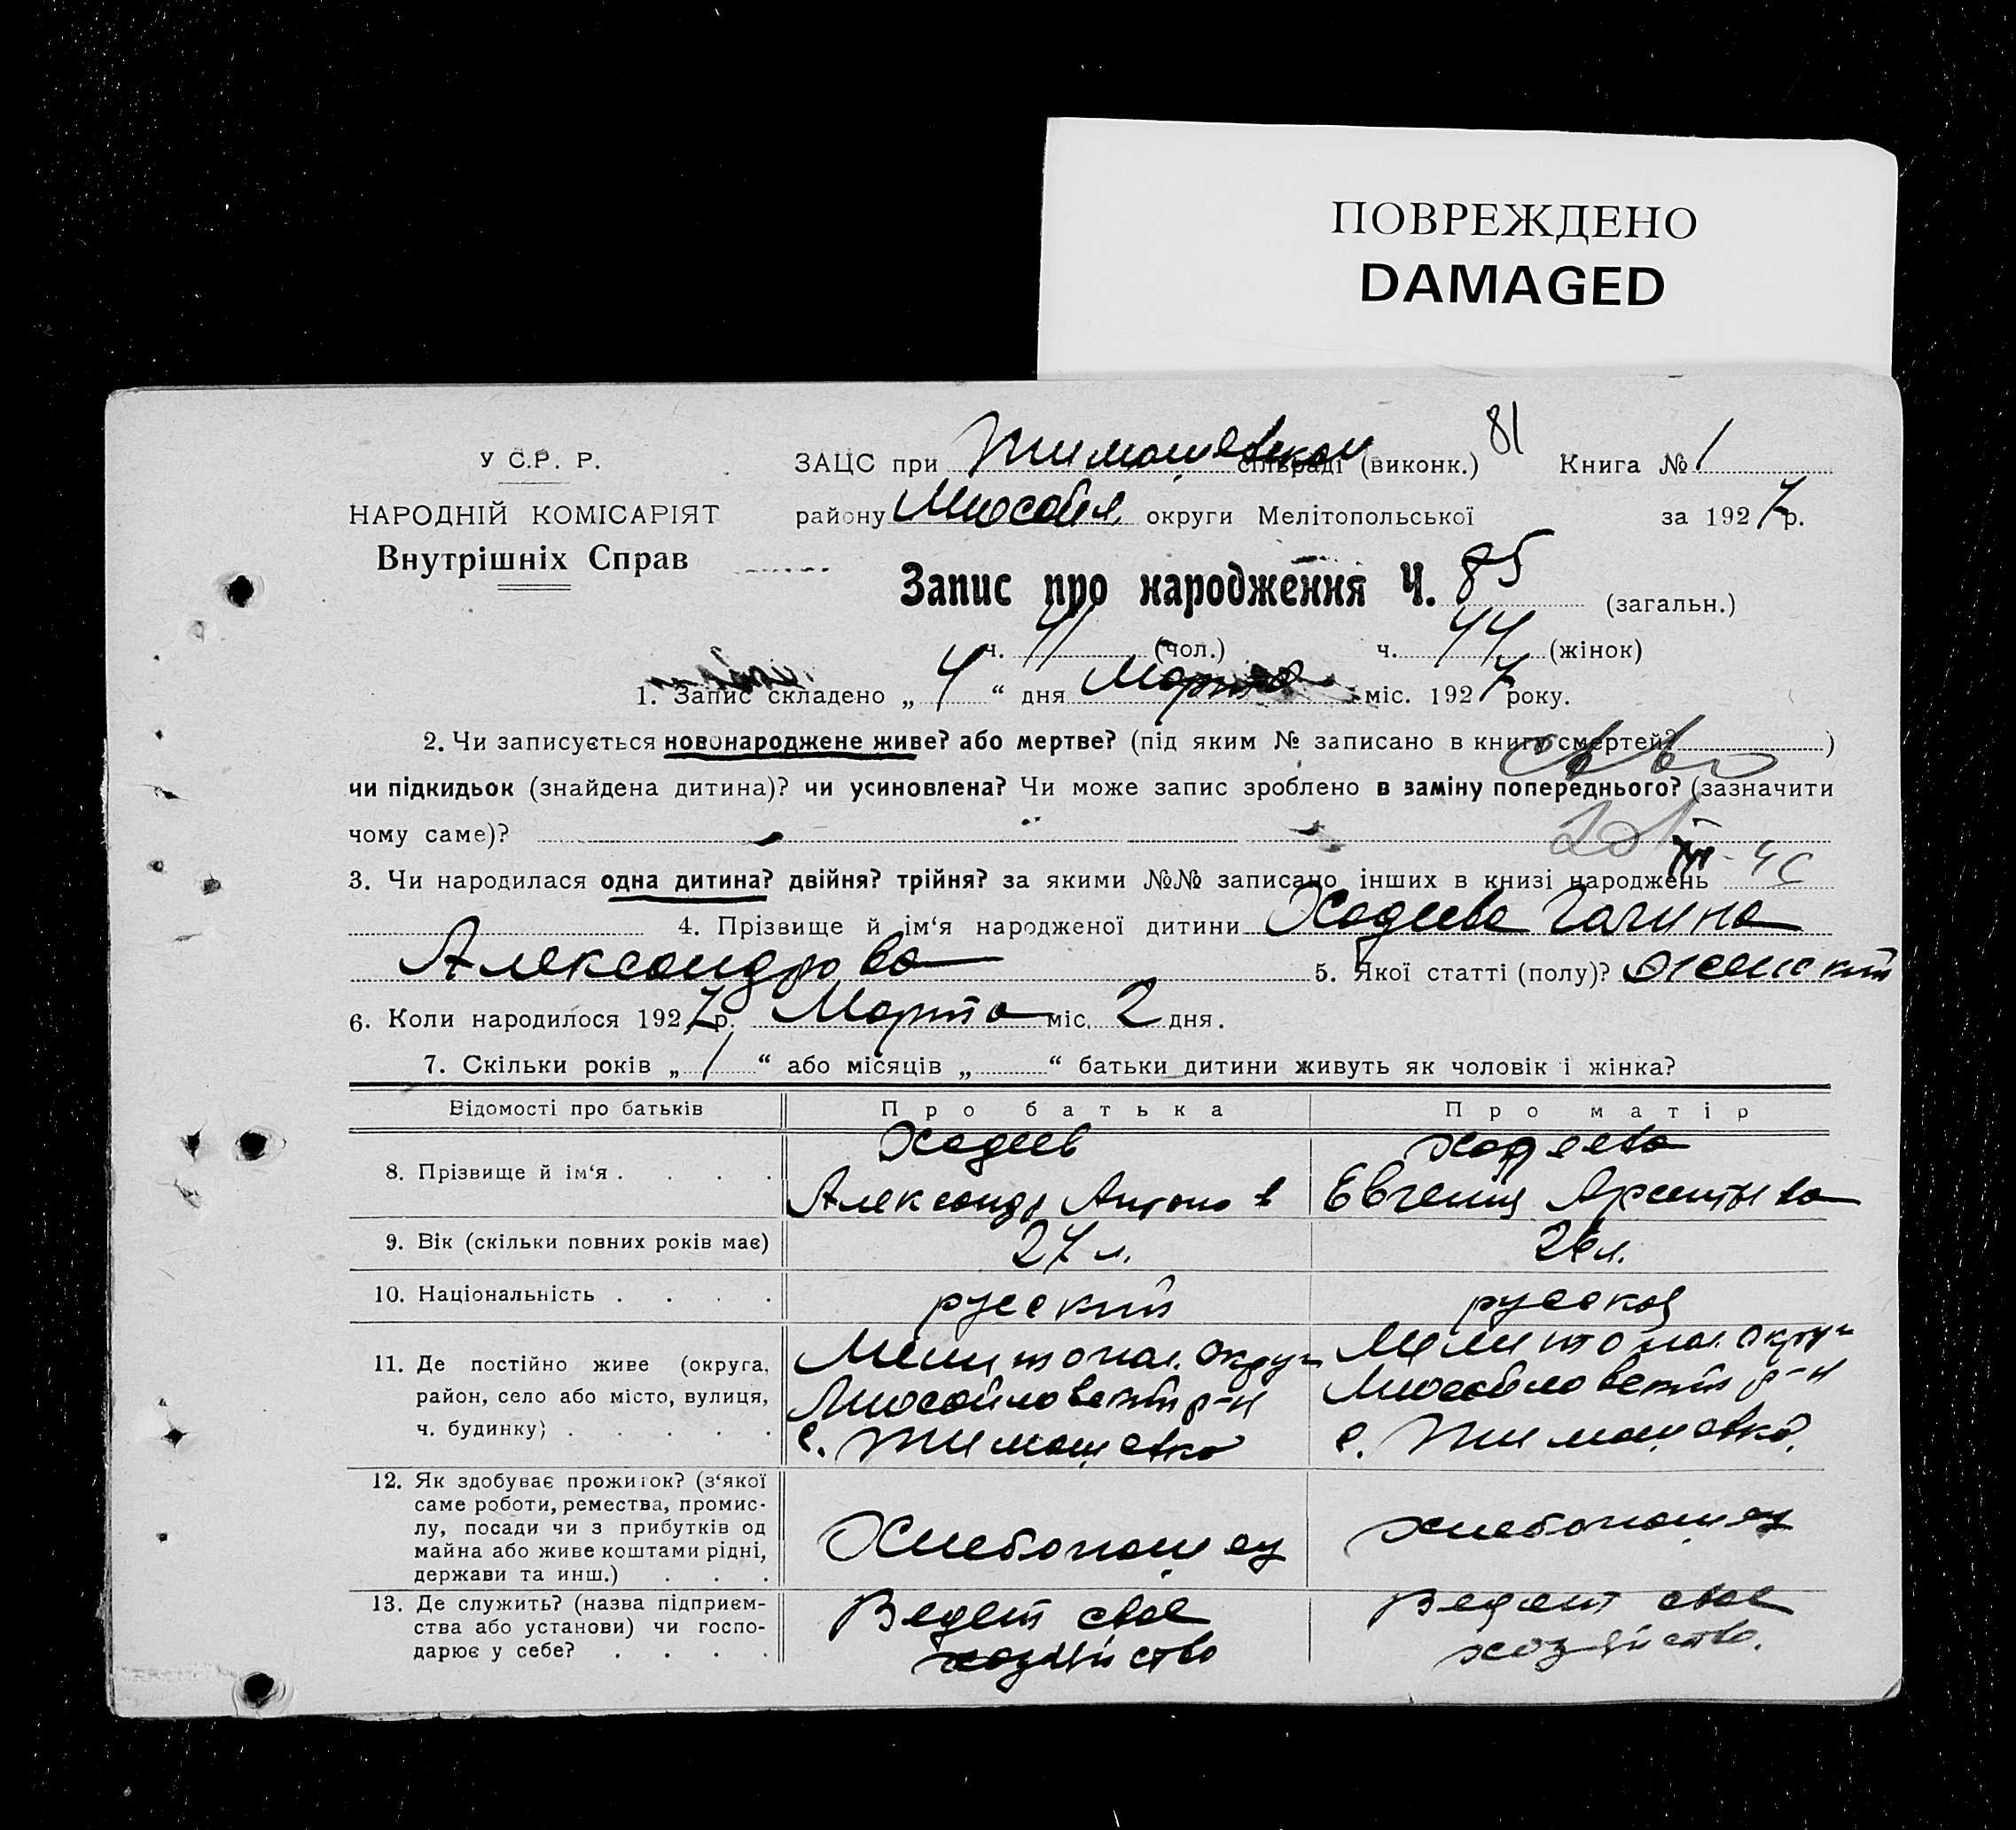 ПОВРЕЖДЕНО
DAMAGED
81
У С.Р. Р.
ЗАЦС при Тимошевском сільраді (виконк.) Книга № 1
НАРОДНІЙ КОМІСАРІЯТ
району округи Мелітопольської за 1927 р.
Внутрішніх Справ
Запис про народження Ч. 85 (загальн.)
ч. 41 (чол.) ч. 44 (жінок)
1. Запис складено „ 4 “ дня Марта міс. 1927 року.
2. Чи записується новонароджене живе? або мертве? (під яким № записано в книгу смертей? )
чи підкидьок (знайдена дитина)? чи усиновлена? Чи може запис зроблено в заміну попереднього? (зазначити
чому саме)?
3. Чи народилася одна дитина? двійня? трійня? за якими №№ записано інших в книзі народжень
4. Прізвище й ім‘я народженої дитини Хадеева Галина
Александрова 5. Якої статті (полу)? женский
6. Коли народилося 1927 р. Марта міс. 2 дня.
7. Скільки років „ 1 “ або місяців „ “ батьки дитини живуть як чоловік і жінка?
Відомості про батьків Про батька Про матір
8. Прізвище й ім‘я . . . . Хадеев Хадеева
Александр Антонов Евгения Арсентьева
9. Вік (скільки повних років має) 27 л. 26 л.
10. Національність . . . . русский русская
11. Де постійно живе (округа, Мелитопол. округ Мелитопол. округ
район, село або місто, вулиця, р-н р-н
ч. будинку) . . . . . с. Тимошевка с. Тимошевка
12. Як здобуває прожиток? (з‘якої
саме роботи, ремества, промис-
лу, посади чи з прибутків од Хлебопашец хлебопашец
майна або живе коштами рідні,
держави та инш.) . . .
13. Де служить? (назва підприєм- Ведет свое Ведет свое
ства або установи) чи госпо- хозяйство хозяйство.
дарює у себе? . . . .